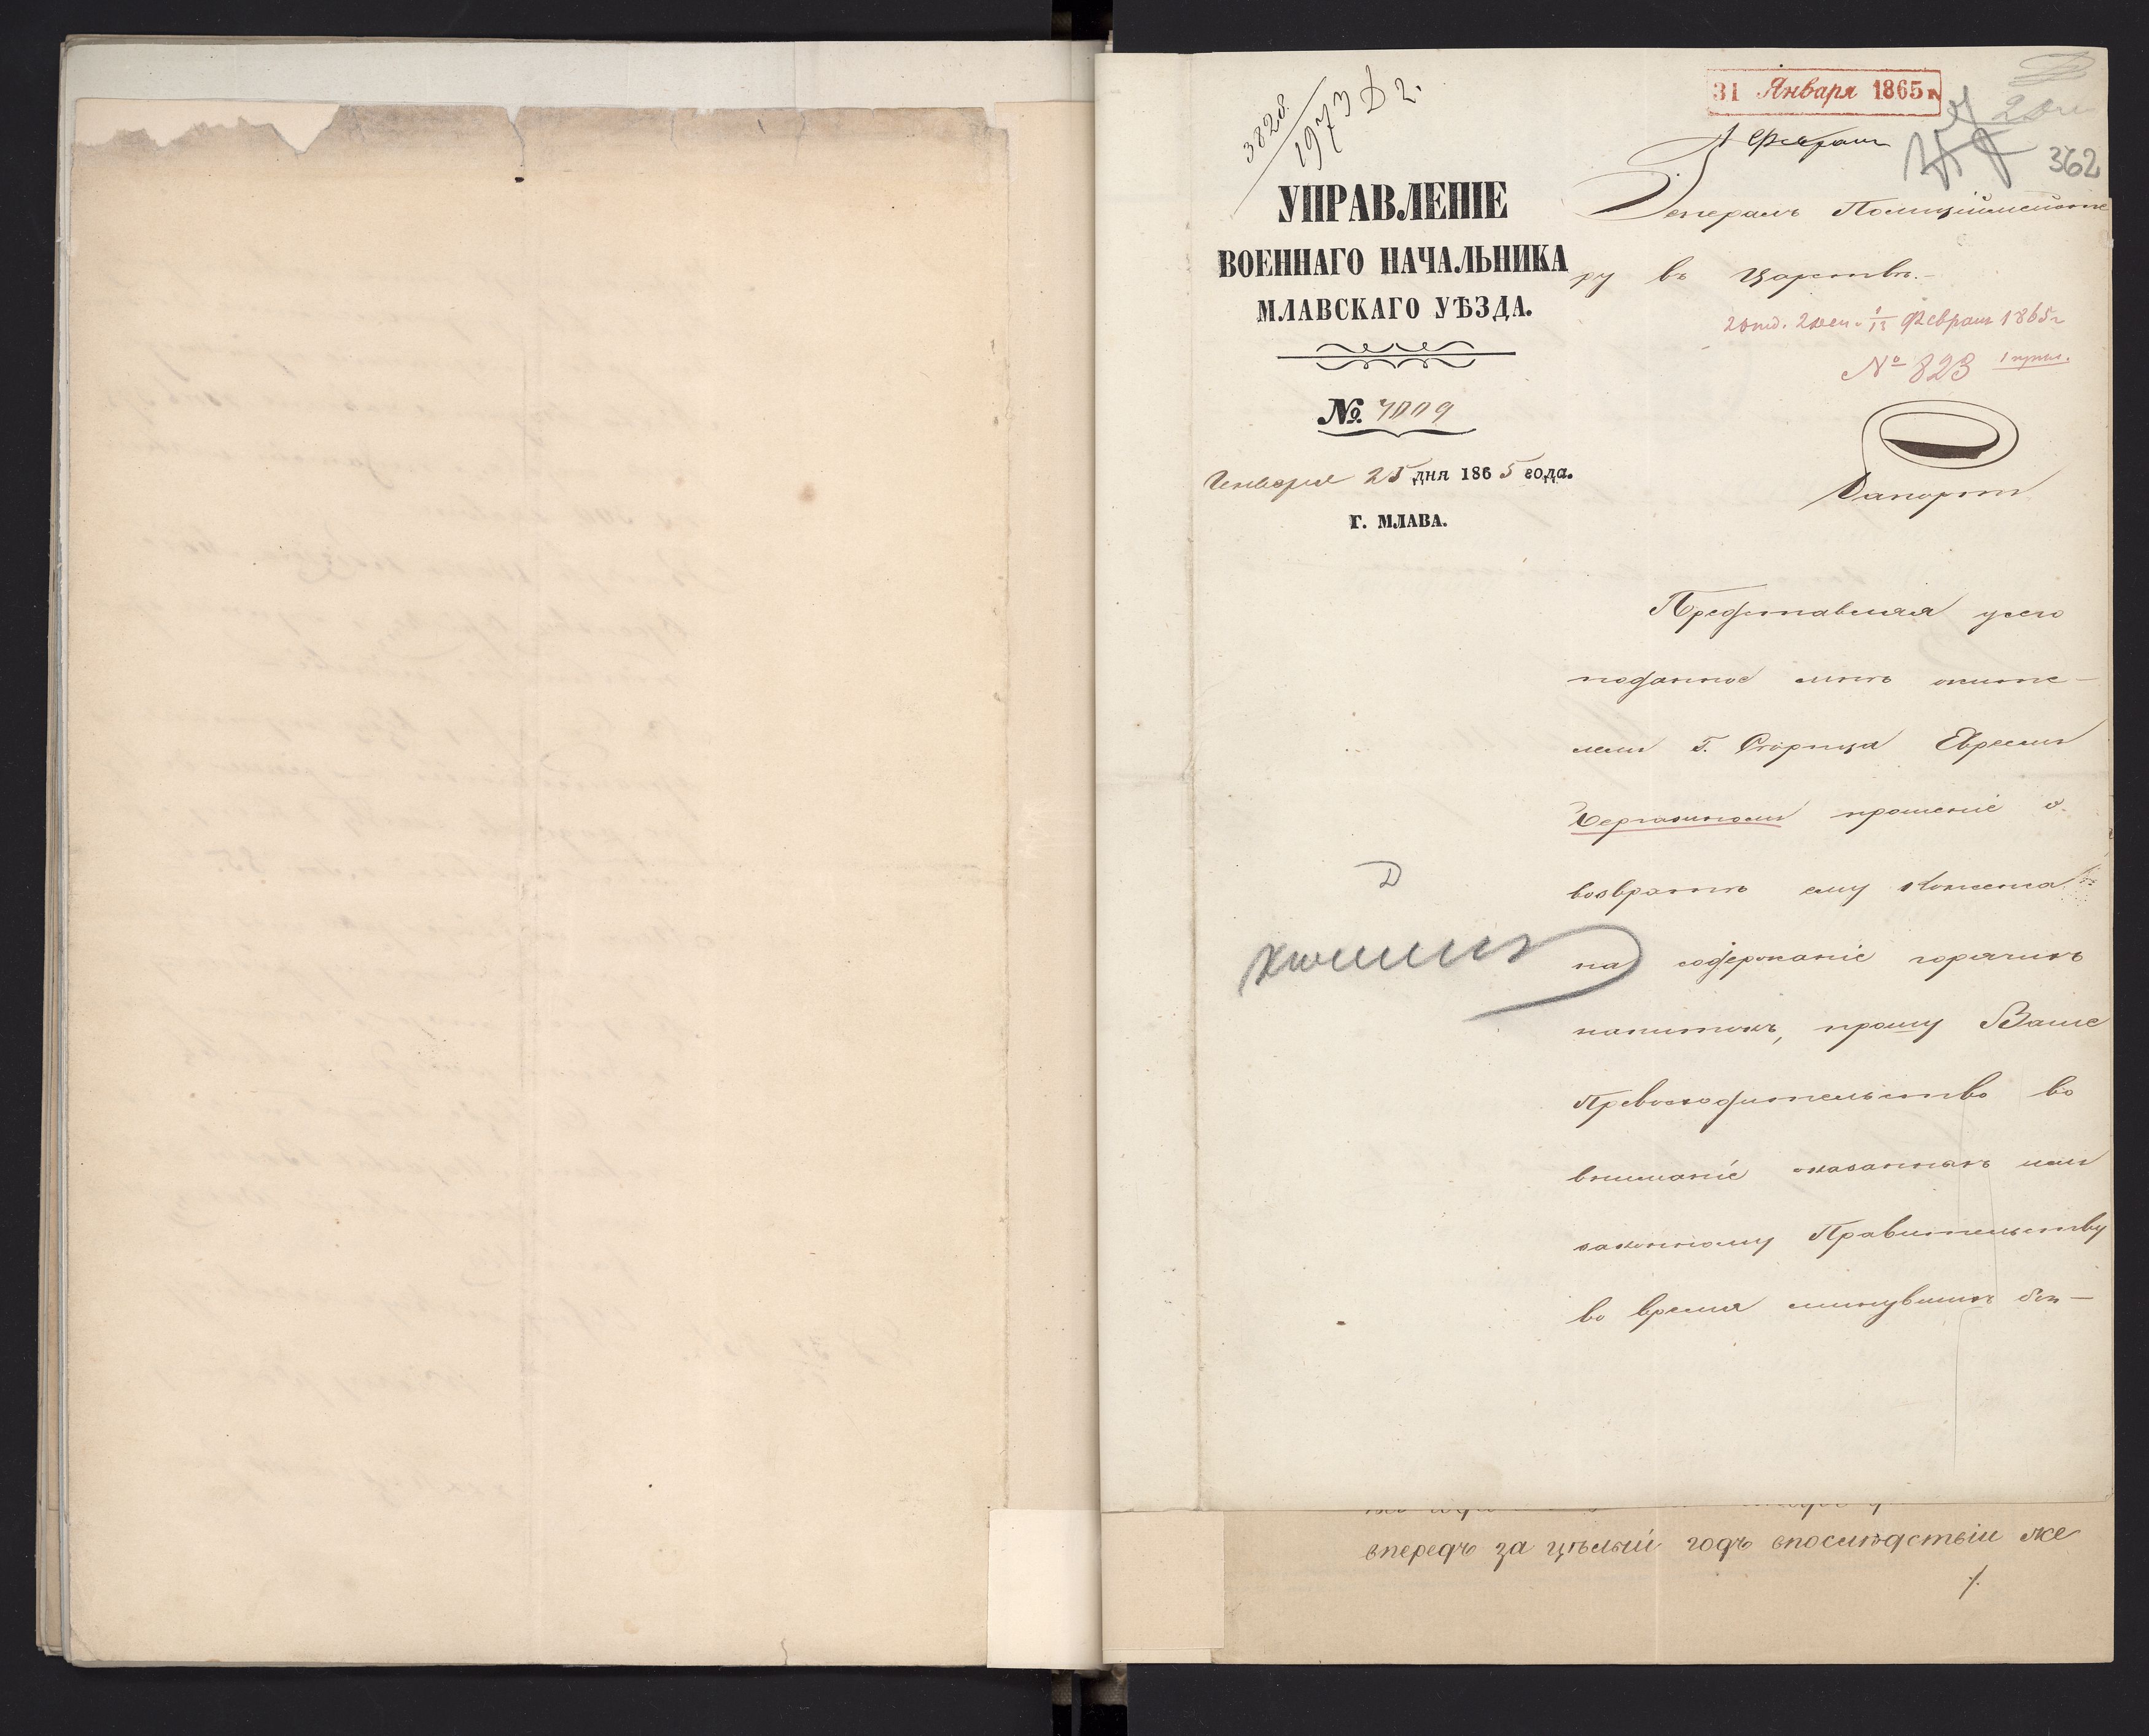 3828
1973 Д 2.
31 Января 1865 г.
1 Февраля
362
УПРАВЛЕНІЕ
ВОЕННАГО НАЧАЛЬНИКА
МЛАВСКАГО УѢЗДА.
№. 7009
Января 25 дня 1865 года.
Г. МЛАВА.
Генералъ Полиціймейсте
ру въ Царствѣ.
2 отд. 1/13 Февраля 1865 г
№ 823 1 прил.
Рапортъ
Представляя у сего
поданное мнѣ жите-
лемъ г. Евреемъ
прошеніе о
возвратѣ ему Консенса
на содержаніе горячихъ
напитковъ, прошу Ваше
Превосходительство во
вниманіе оказанныхъ имъ
законному Правительству
во время минувшихъ без-
впередъ за цѣлый годъ впослѣдствіи же
./.